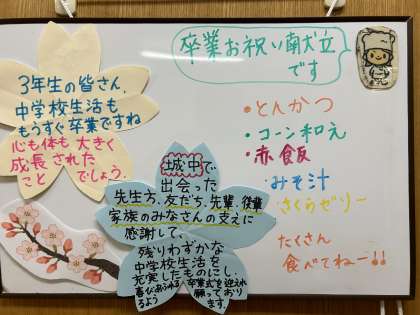 3年生の皆さん、
中学校生活も
もうすぐ卒業ですね
心も体も大きく
成長された
ことでしょう。
卒業お祝い献立
です
・とんかつ
・コーン和え
・赤飯
・みそ汁
・さくらゼリー
たくさん
食べてねー!!
城中で
出会った
先生方、友だち、先輩、後輩
家族のみなさんの支えに
感謝して、
残りわずかな
中学校生活を
充実したものにし、
喜びあふれる卒業式を迎えれ
るよう願っており
ます